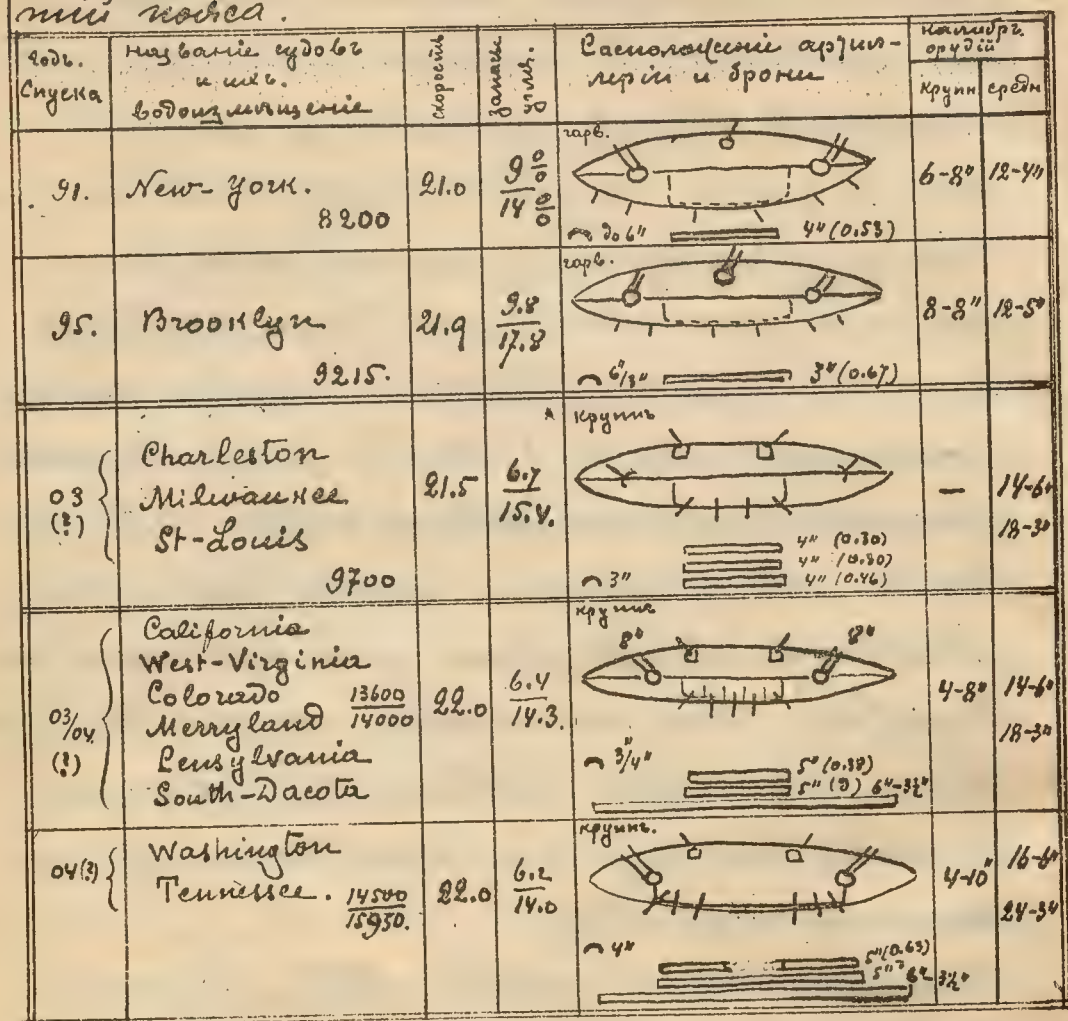 пояса.
Годъ.
Спуска
названіе судовъ
и ихъ.
водоизмѣщеніе
скорость
запасы
угля.
Расположеніе артил-
леріи и брони
калибръ.
орудій
крупн средн
91.
New-York.
8200
21.0
9%
14%
гарв.
до 6" 4" (0.53)
6-8" 12-4"
95.
Brooklyn
9215.
21.9
9.8
17.8
гарв.
6"/3" 3" (0.67)
8-8" 12-5"
03
(?)
Charleston
Milwaukee
St-Louis
9700
21.5
6.7
15.4.
Круппъ
4" (0.30)
4" (0.30)
3" 4" (0.46)
—
14-6"
18-3"
03/04.
(?)
California
West-Virginia
Colorado 13600
Merryland 14000
Pensylvania
South-Dacota
22.0
6.4
14.3.
круппъ
8" 8"
3/4"
5" (0.38)
5" (?) 6"-3½"
4-8" 14-6"
18-3"
04(?)
Washington
Tennessee. 14500
15950.
22.0
6.2
14.0
круппъ.
4"
5" (0.63)
5" 6"-3½"
4-10" 16-6"
24-3"